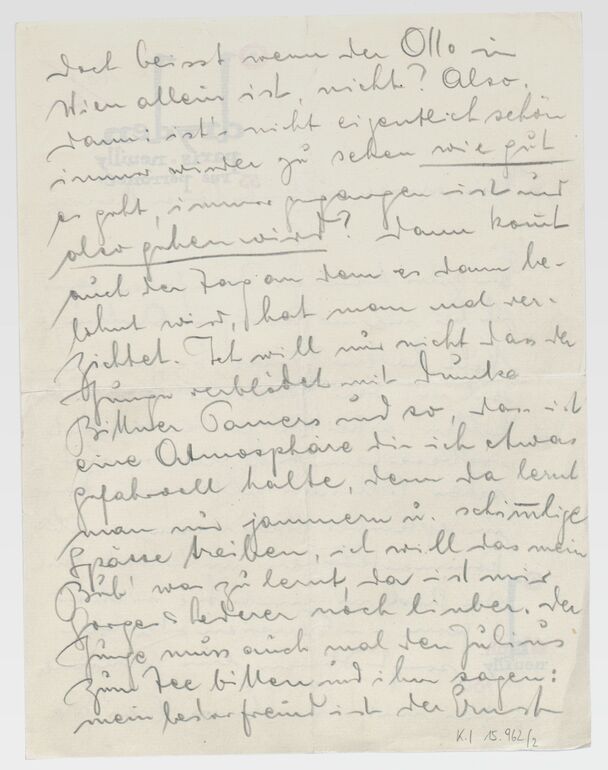 doch beisst wenn der Ollo in
Wien allein ist, nicht? Also,
dann: ist's nicht eigentlich schön
immer wieder zu sehen wie gut
es geht, immer gegangen ist und
also gehen wird? Dann kommt
auch der Tag an dem es dann be-
lohnt wird, hat man mal ver-
zichtet. Ich will nur nicht dass der
Junge verblödet mit
Bittner und so, das ist
eine Atmosphäre die ich etwas
gefahrvoll halte, denn da lernt
man nur jammern u. schimmlige
Spässe treiben, ich will das mein
Bub' was zu lernt, da ist mir
Lederer noch lieber. Der
Junge muss auch mal den Julius
zum Tee bitten und ihm sagen:
mein bester Freund ist der Ernst
K.I 15.962/2
paris neuilly
rue perronet
neuilly